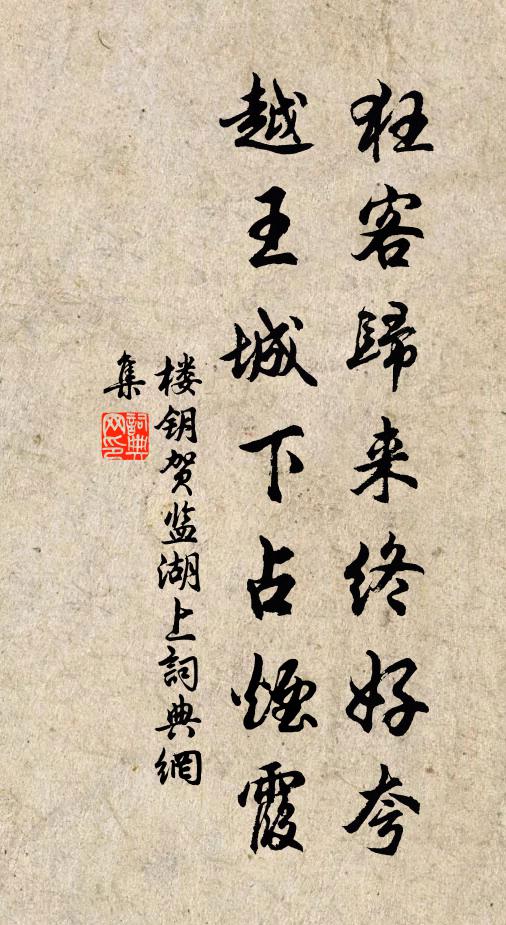 狂客歸来终好夸
越王城下占煙霞
楼钥贺监湖上詞典網
集
詞典网印